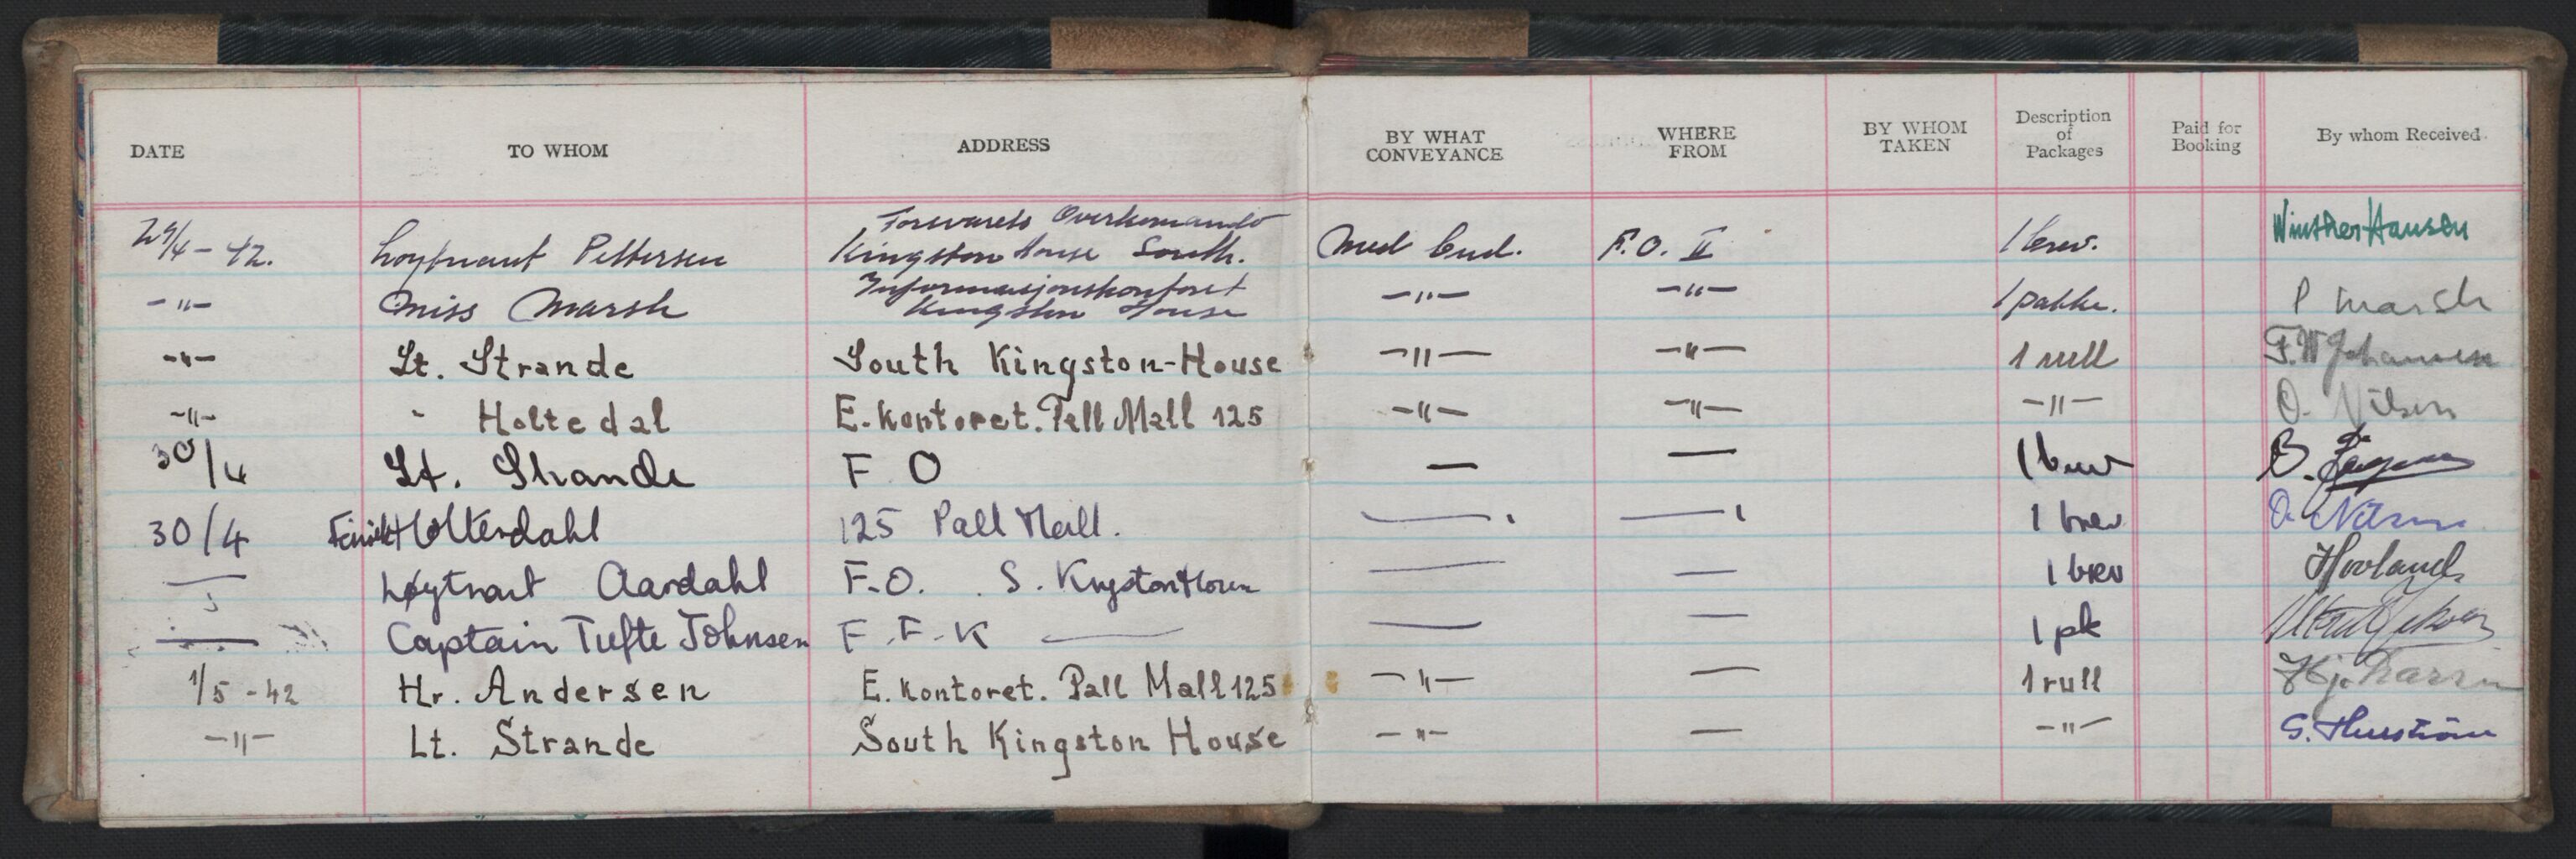 DATE TO WHOM ADDRESS BY WHAT CONVEYANCE WHERE FROM BY WHOM TAKEN Description of Packages Paid for Booking By whom Received
Forsvarets Overkomando
29/4 - 42. Løytnant Pettersen Kingston House South. Med bud. F.O. II 1 brev. Winther Hansen
Informasjonskontoret
-"- Miss Marsh Kingston House -"- -"- 1 pakke. P Marsh
-"- Lt. Strande South Kingston-House -"- -"- 1 rull F.W Johansen
-"- - Holtedal E. kontoret. Pall Mall 125 -"- -"- -"- O. Nilsen
30/4 Lt. Strande F O — — 1 brev B.
30/4 Holterdahl 125 Pall Mall. — — 1 brev O. Nilsen
— Løytnant Aardahl F.O. . S. Kngston House — — 1 brev Hovland
— Captain Tufte Johnsen F.F.K — — — 1 pk
1/5 - 42 Hr. Andersen E. kontoret. Pall Mall 125 -"- — 1 rull
-"- Lt. Strande South Kingston House -"- — -"- S.